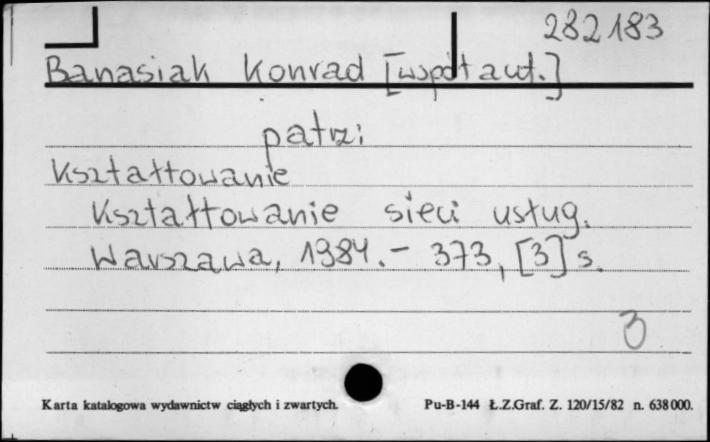 282183
Banasiak Konrad [współaut.]
patrz:
Kształtowanie
Kształtowanie sieci usług.
Warszawa, 1984. – 373, [3] s.
3
Karta katalogowa wydawnictw ciągłych i zwartych. Pu-B-144 Ł.Z.Graf. Z. 120/15/82 n. 638000.